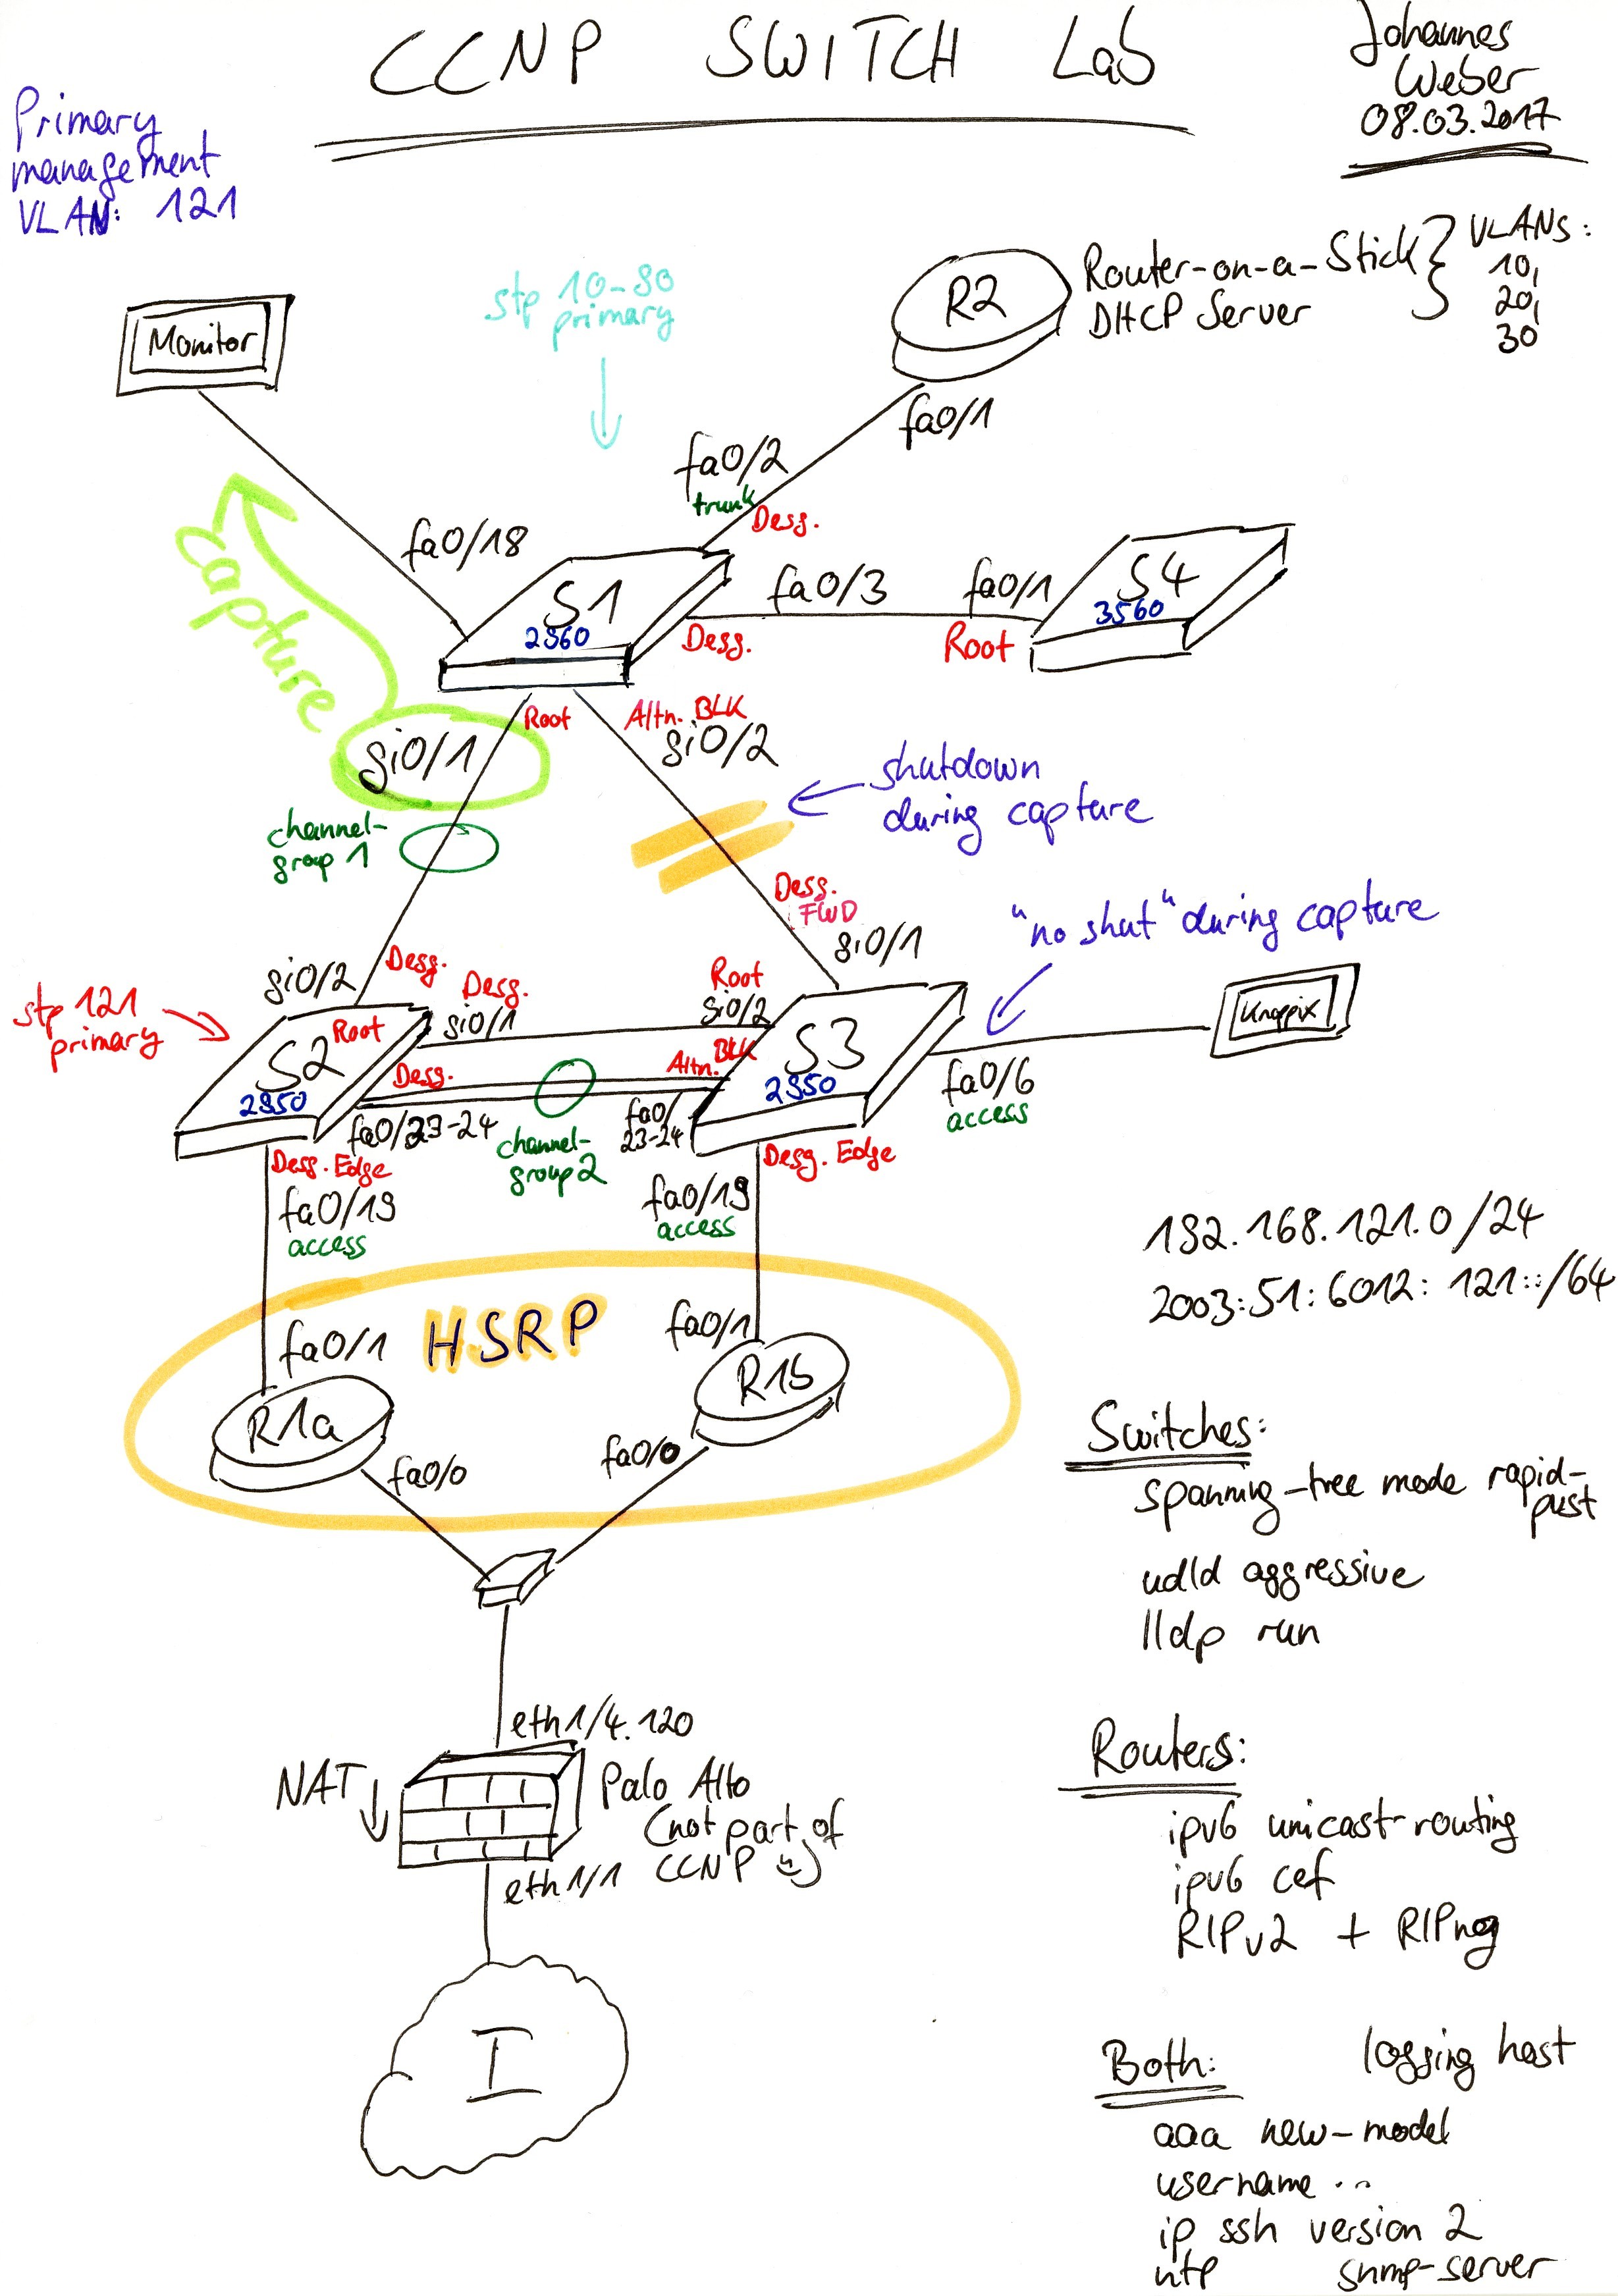 CCNP SWITCH Lab
Johannes
Weber
08.03.2017
Primary
management
VLAN: 121
stp 10-90
primary
R2
Router-on-a-Stick
DHCP Server
VLANs:
10,
20,
30
Monitor
fa0/1
fa0/2
trunk
Desg.
capture
fa0/18
S1
2960
fa0/3
Desg.
fa0/1
Root
S4
3560
Root
gi0/1
Altn. BLK
gi0/2
shutdown
during capture
channel-
group 1
Desg.
FWD
gi0/1
"no shut" during capture
gi0/2
Desg.
stp 121
primary
Root
S2
2950
Desg.
gi0/1
Root
gi0/2
S3
2950
Knoppix
Desg.
BLK
Altn.
fa0/6
access
fa0/23-24
channel-
group 2
fa0/
23-24
Desg. Edge
fa0/19
access
Desg. Edge
fa0/19
access
192.168.121.0/24
2003:51:6012:121::/64
HSRP
fa0/1
R1a
fa0/0
fa0/1
R1b
fa0/0
Switches:
spanning-tree mode rapid-
pvst
udld aggressive
lldp run
eth1/4.120
NAT
Palo Alto
(not part of
CCNP :-)
eth1/1
Routers:
ipv6 unicast-routing
ipv6 cef
RIPv2 + RIPng
I
Both:
logging host
aaa new-model
username ...
ip ssh version 2
ntp
snmp-server